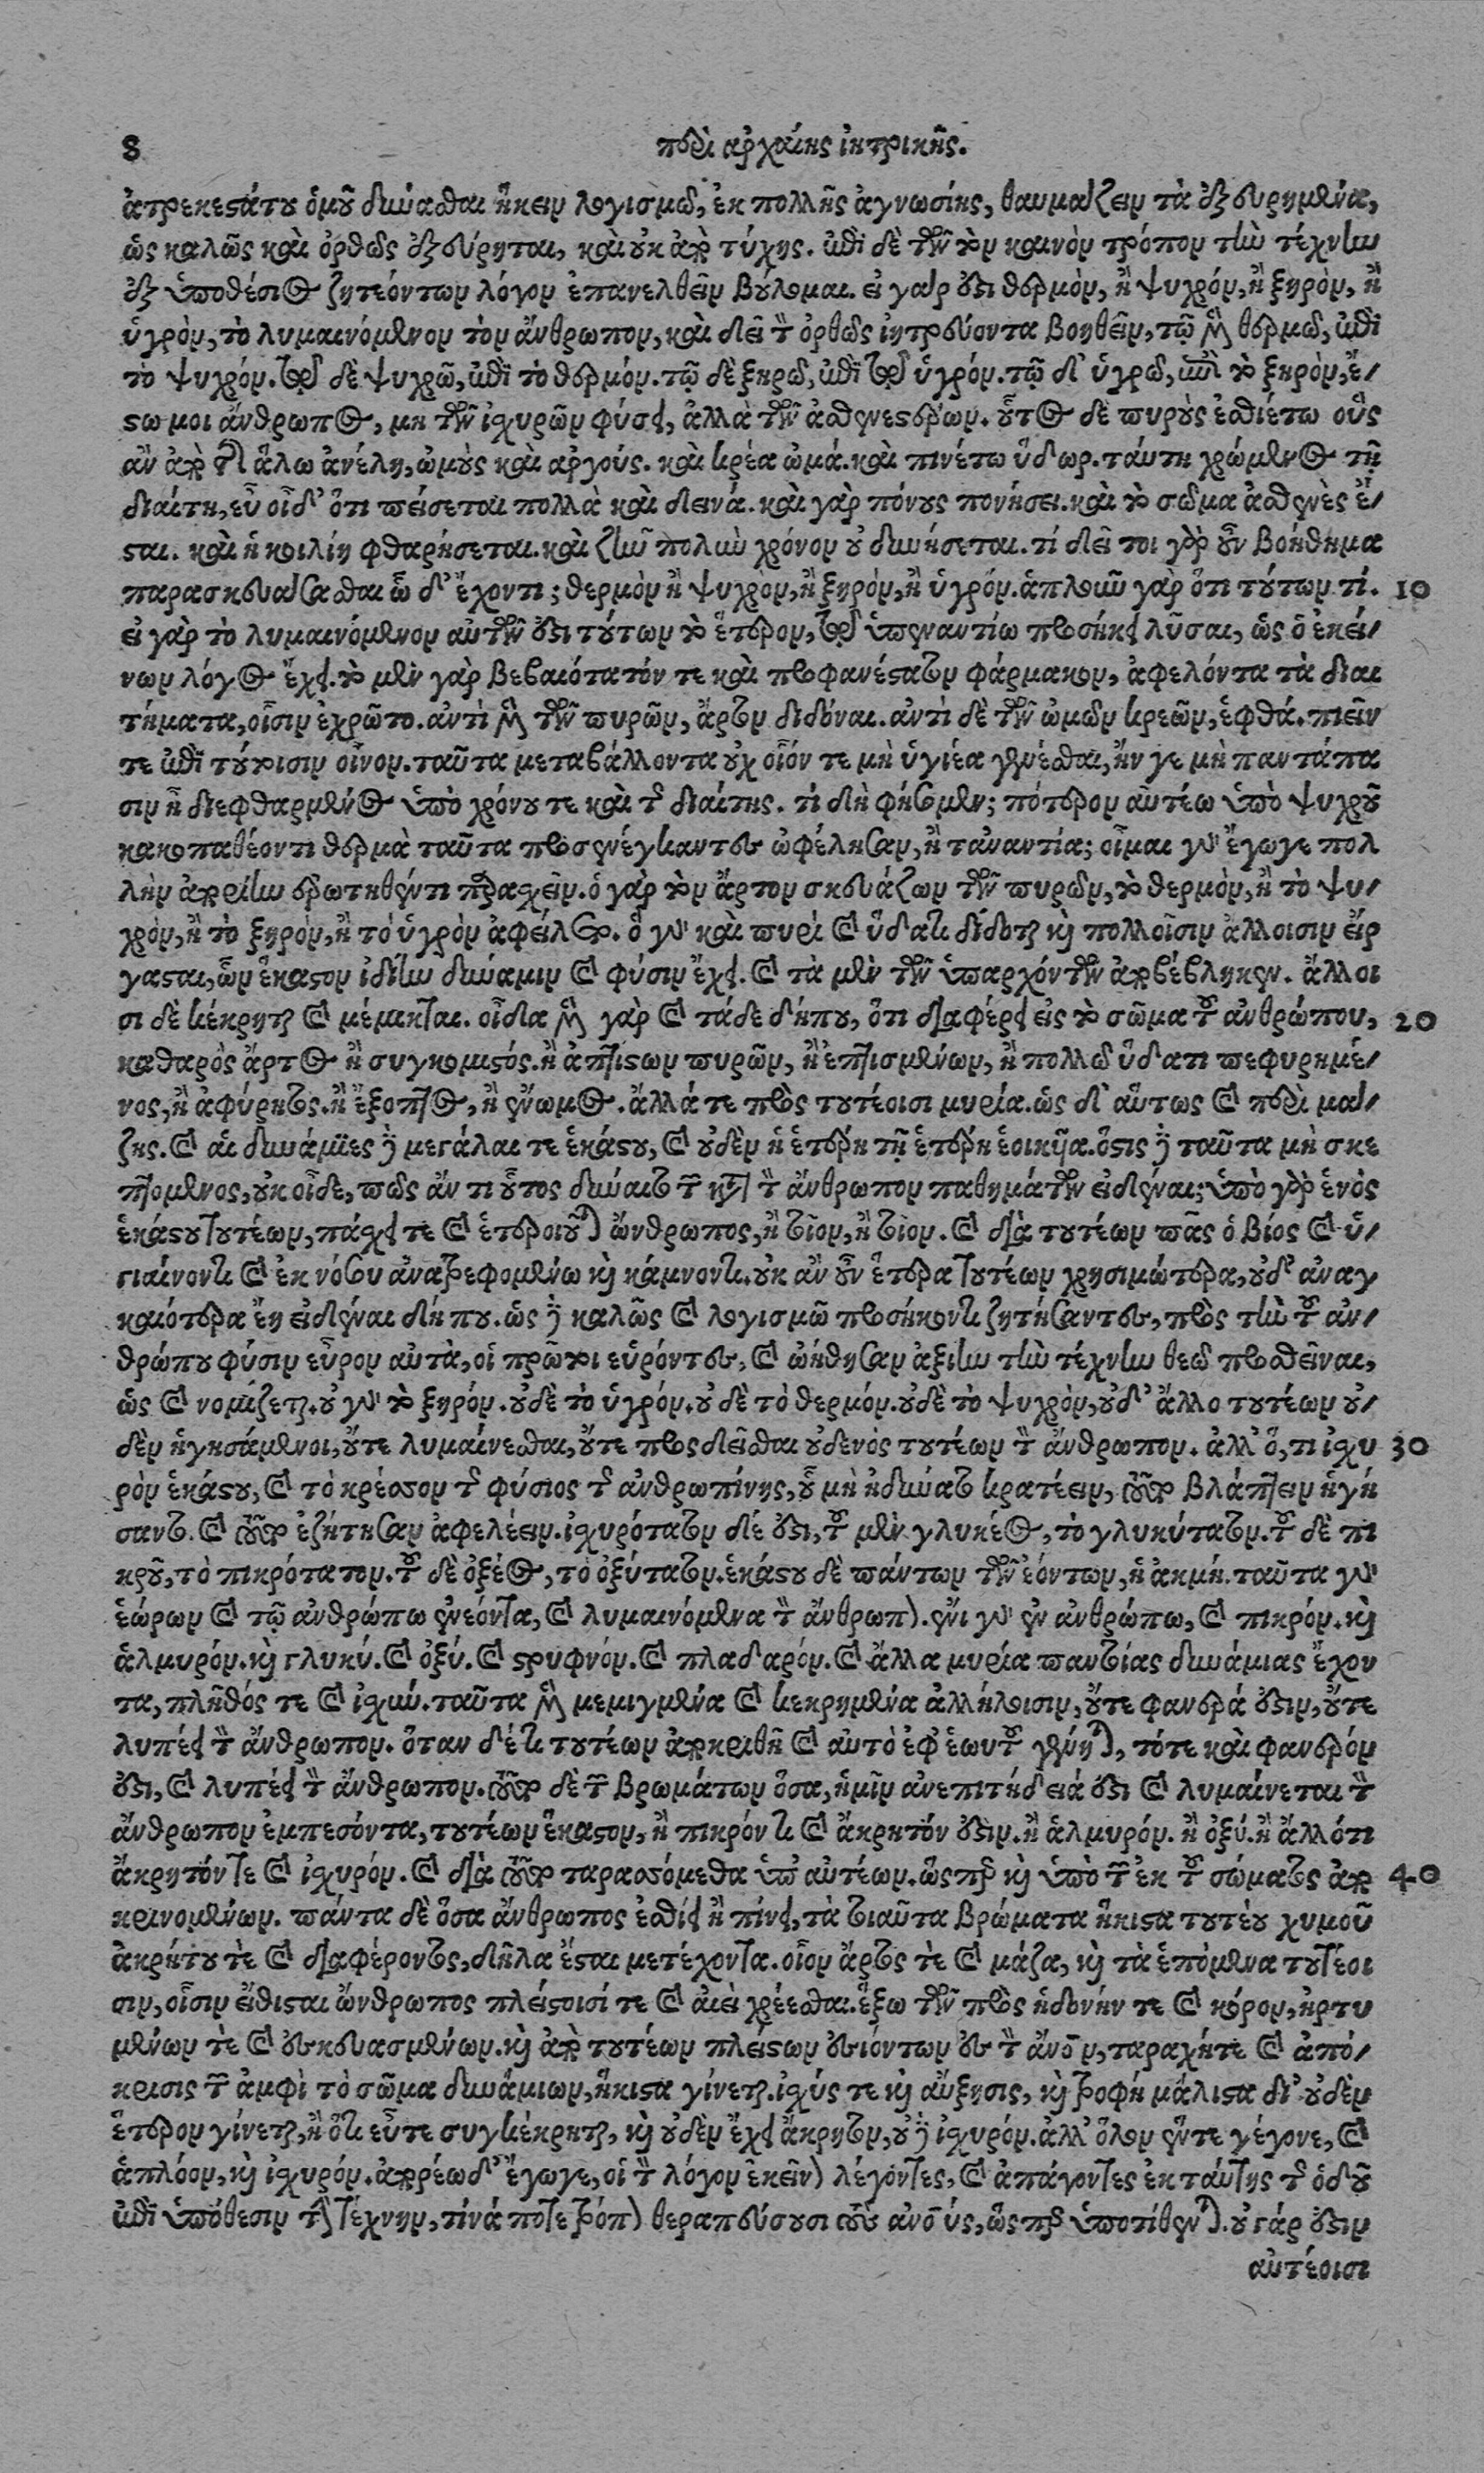 8
περὶ ἀρχαίης ἰητρικῆς.
ἀτρεκεστάτου ὁμοῦ δύνασθαι ἥκειν λογισμῷ, ἐκ πολλῆς ἀγνωσίης, θαυμάζειν τὰ ἐξευρημένα,
ὡς καλῶς καὶ ὀρθῶς ἐξεύρηται, καὶ οὐκ ἀπὸ τύχης. ἐπὶ δὲ τῶν τὸν καινὸν τρόπον τὴν τέχνην
ἐξ ὑποθέσιος ζητεόντων λόγον ἐπανελθεῖν βούλομαι. εἰ γάρ ἐστι θερμὸν, ἢ ψυχρόν, ἢ ξηρὸν, ἢ
ὑγρὸν, τὸ λυμαινόμενον τὸν ἄνθρωπον, καὶ δεῖ τὸν ὀρθῶς ἰητρεύοντα βοηθεῖν, τῷ μὲν θερμῷ, ἐπὶ
τὸ ψυχρόν. τῷ δὲ ψυχρῷ, ἐπὶ τὸ θερμόν. τῷ δὲ ξηρῷ, ἐπὶ τὸ ὑγρόν. τῷ δ' ὑγρῷ, ἐπὶ τὸ ξηρὸν, ἔ-
στω μοι ἄνθρωπος, μὴ τῶν ἰσχυρῶν φύσει, ἀλλὰ τῶν ἀσθενεστέρων. οὗτος δὲ πυροὺς ἐσθιέτω οὓς
ἂν ἀπὸ τῆς ἅλω ἀνέλῃ, ὠμοὺς καὶ ἀργούς. καὶ κρέα ὠμά. καὶ πινέτω ὕδωρ. ταύτῃ χρώμενος τῇ
διαίτῃ, εὖ οἶδ' ὅτι πείσεται πολλὰ καὶ δεινά. καὶ γὰρ πόνους πονήσει. καὶ τὸ σῶμα ἀσθενὲς ἔ-
σται. καὶ ἡ κοιλίη φθαρήσεται. καὶ ζῆν πολὺν χρόνον οὐ δυνήσεται. τί δεῖ τοι γὰρ οὖν βοήθημα
παρασκευάζασθαι ὧδ' ἔχοντι; θερμὸν ἢ ψυχρὸν, ἢ ξηρὸν, ἢ ὑγρόν. ἁπλοῦν γὰρ ὅτι τούτων τί. 10
εἰ γὰρ τὸ λυμαινόμενον αὐτῶν ἐστι τούτων τὸ ἕτερον, τῷ ὑπεναντίῳ προσήκει λῦσαι, ὡς ὁ ἐκεί-
νων λόγος ἔχει. τὸ μὲν γὰρ βεβαιότατόν τε καὶ προφανέστατον φάρμακον, ἀφελόντα τὰ διαι
τήματα, οἷσιν ἐχρῶτο. ἀντὶ μὲν τῶν πυρῶν, ἄρτον διδόναι. ἀντὶ δὲ τῶν ὠμῶν κρεῶν, ἑφθά. πιεῖν
τε ἐπὶ τούτοισιν οἶνον. ταῦτα μεταβάλλοντα οὐχ οἷόν τε μὴ ὑγιέα γενέσθαι, ἤν γε μὴ παντάπα
σιν ᾖ διεφθαρμένος ὑπὸ χρόνου τε καὶ τῆς διαίτης. τί δὴ φήσομεν; πότερον αὐτέῳ ὑπὸ ψυχροῦ
κακοπαθέοντι θερμὰ ταῦτα προσενέγκαντες ὠφέλησαν, ἢ τἀναντία; οἶμαι γὰρ ἔγωγε πολ
λὴν ἀπορίην ἐρωτηθέντι παρασχεῖν. ὁ γὰρ τὸν ἄρτον σκευάζων τῶν πυρῶν, τὸ θερμὸν, ἢ τὸ ψυ-
χρὸν, ἢ τὸ ξηρὸν, ἢ τὸ ὑγρὸν ἀφείλετο. ὃ γὰρ καὶ πυρὶ καὶ ὕδατι δίδοται καὶ πολλοῖσιν ἄλλοισιν εἴρ
γασται, ὧν ἕκαστον ἰδίην δύναμιν καὶ φύσιν ἔχει. καὶ τὰ μὲν τῶν ὑπαρχόντων ἀποβέβληκεν. ἄλλοι
σι δὲ κέκρηται καὶ μέμικται. οἶδα μὲν γὰρ καὶ τάδε δήπου, ὅτι διαφέρει εἰς τὸ σῶμα τοῦ ἀνθρώπου, 20
καθαρὸς ἄρτος ἢ συγκομιστός. ἢ ἀπτίστων πυρῶν, ἢ ἐπτισμένων, ἢ πολλῷ ὕδατι πεφυρημέ-
νος, ἢ ἀφύρητος. ἢ ἔξοπτος, ἢ ἔνωμος. ἄλλά τε πρὸς τουτέοισι μυρία. ὡς δ' αὕτως καὶ περὶ μά-
ζης. καὶ αἱ δυνάμιες δὲ μεγάλαι τε ἑκάστου, καὶ οὐδὲν ἡ ἑτέρη τῇ ἑτέρῃ ἐοικυῖα. ὅστις δὲ ταῦτα μὴ σκε
πτόμενος, οὐκ οἶδε, πῶς ἄν τι οὗτος δύναιτο τῶν κατὰ τὸν ἄνθρωπον παθημάτων εἰδέναι; ὑπὸ γὰρ ἑνὸς
ἑκάστου τουτέων, πάσχει τε καὶ ἑτεροιοῦται ὥνθρωπος, ἢ τοῖον, ἢ τοῖον. καὶ διὰ τουτέων πᾶς ὁ βίος καὶ ὑ-
γιαίνοντι καὶ ἐκ νόσου ἀνατρεφομένῳ καὶ κάμνοντι. οὐκ ἂν οὖν ἕτερα τουτέων χρησιμώτερα, οὐδ' ἀναγ
καιότερα ἔη εἰδέναι δήπου. ὡς δὲ καλῶς καὶ λογισμῷ προσήκοντι ζητήσαντες, πρὸς τὴν τοῦ ἀν-
θρώπου φύσιν εὗρον αὐτὰ, οἱ πρῶτοι εὑρόντες, καὶ ᾠήθησαν ἀξίην τὴν τέχνην θεῷ προσθεῖναι,
ὡς καὶ νομίζεται. οὐ γὰρ τὸ ξηρόν. οὐδὲ τὸ ὑγρόν. οὐδὲ τὸ θερμόν. οὐδὲ τὸ ψυχρὸν, οὐδ' ἄλλο τουτέων οὐ-
δὲν ἡγησάμενοι, οὔτε λυμαίνεσθαι, οὔτε προσδεῖσθαι οὐδενὸς τουτέων τὸν ἄνθρωπον. ἀλλ' ὅ,τι ἰσχυ 30
ρὸν ἑκάστου, καὶ τὸ κρέσσον τῆς φύσιος τῆς ἀνθρωπίνης, οὗ μὴ ἠδύνατο κρατέειν, τοῦτο βλάπτειν ἡγή
σαντο. καὶ τοῦτο ἐζήτησαν ἀφελέειν. ἰσχυρότατον δέ ἐστι, τοῦ μὲν γλυκέος, τὸ γλυκύτατον. τοῦ δὲ πι
κροῦ, τὸ πικρότατον. τοῦ δὲ ὀξέος, τὸ ὀξύτατον. ἑκάστου δὲ πάντων τῶν ἐόντων, ἡ ἀκμή. ταῦτα γὰρ
ἑώρων καὶ τῷ ἀνθρώπῳ ἐνεόντα, καὶ λυμαινόμενα τὸν ἄνθρωπον. ἔνι γὰρ ἐν ἀνθρώπῳ, καὶ πικρόν. καὶ
ἁλμυρόν. καὶ γλυκύ. καὶ ὀξύ. καὶ στρυφνόν. καὶ πλαδαρόν. καὶ ἄλλα μυρία παντοίας δυνάμιας ἔχον
τα, πλῆθός τε καὶ ἰσχύν. ταῦτα μὲν μεμιγμένα καὶ κεκρημένα ἀλλήλοισιν, οὔτε φανερά ἐστιν, οὔτε
λυπέει τὸν ἄνθρωπον. ὅταν δέ τι τουτέων ἀποκριθῇ καὶ αὐτὸ ἐφ' ἑωυτοῦ γένηται, τότε καὶ φανερόν
ἐστι, καὶ λυπέει τὸν ἄνθρωπον. τοῦτο δὲ τῶν βρωμάτων ὅσα, ἡμῖν ἀνεπιτήδειά ἐστι καὶ λυμαίνεται τὸν
ἄνθρωπον ἐμπεσόντα, τουτέων ἕκαστον, ἢ πικρόν τι καὶ ἄκρητόν ἐστιν. ἢ ἁλμυρόν. ἢ ὀξύ. ἢ ἄλλό τι
ἄκρητόν τε καὶ ἰσχυρόν. καὶ διὰ τοῦτο ταρασσόμεθα ὑπ' αὐτέων. ὥσπερ καὶ ὑπὸ τῶν ἐκ τοῦ σώματος ἀπο 40
κρινομένων. πάντα δὲ ὅσα ἄνθρωπος ἐσθίει ἢ πίνει, τὰ τοιαῦτα βρώματα ἥκιστα τουτέου χυμοῦ
ἀκρήτου τὲ καὶ διαφέροντος, δῆλα ἔσται μετέχοντα. οἷον ἄρτος τὲ καὶ μάζα, καὶ τὰ ἑπόμενα τουτέοι
σιν, οἷσιν εἴθισται ὥνθρωπος πλείστοισί τε καὶ αἰεὶ χρέεσθαι. ἔξω τῶν πρὸς ἡδονήν τε καὶ κόρον, ἠρτυ
μένων τὲ καὶ ἐσκευασμένων. καὶ ἀπὸ τουτέων πλείστων ἐσιόντων ἐς τὸν ἄνον, ταραχή τε καὶ ἀπό-
κρισις τῶν ἀμφὶ τὸ σῶμα δυνάμιων, ἥκιστα γίνεται. ἰσχύς τε καὶ αὔξησις, καὶ τροφὴ μάλιστα δι' οὐδὲν
ἕτερον γίνεται, ἢ ὅτι εὖ τε συγκέκρηται, καὶ οὐδὲν ἔχει ἄκρητον, οὐδὲ ἰσχυρόν. ἀλλ' ὅλον ἕν τε γέγονε, καὶ
ἁπλόον, καὶ ἰσχυρόν. ἀπορέω δ' ἔγωγε, οἱ τὸν λόγον ἐκεῖνον λέγοντες, καὶ ἀπάγοντες ἐκ ταύτης τῆς ὁδοῦ
ἐπὶ ὑπόθεσιν τὴν τέχνην, τίνά ποτε τρόπον θεραπεύσουσι τοὺς ἀνους, ὥσπερ ὑποτίθενται. οὐ γάρ ἐστιν
αὐτέοισι